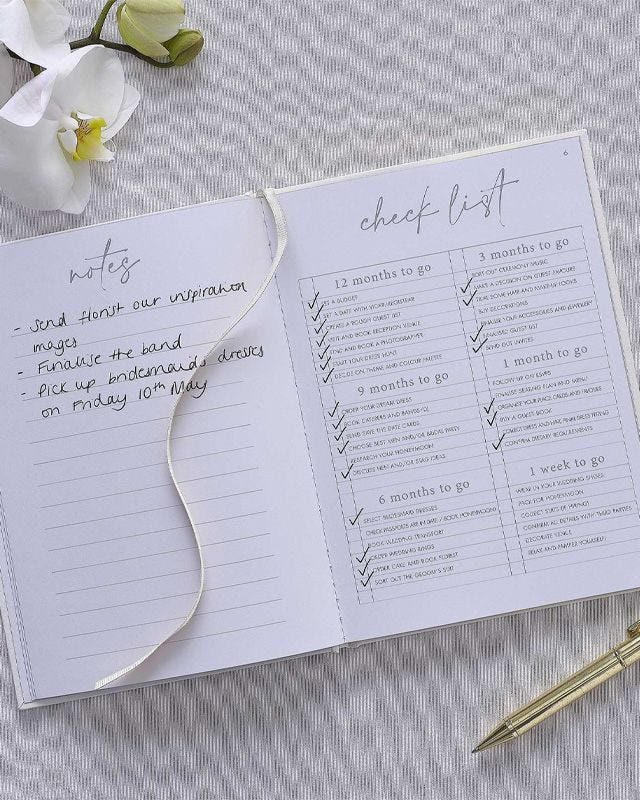 notes
- send florist our inspiration
images
- Finalise the band
- Pick up bridesmaids dresses
on Friday 10th May
6
check list
12 months to go
SET A BUDGET
SET A DATE WITH VICAR/REGISTRAR
CREATE A ROUGH GUEST LIST
VISIT AND BOOK RECEPTION VENUE
FIND AND BOOK A PHOTOGRAPHER
START YOUR DRESS HUNT
DECIDE ON THEME AND COLOUR PALETTE
9 months to go
ORDER YOUR DREAM DRESS
BOOK CATERERS AND BANDS/DJ
SEND 'SAVE THE DATE' CARDS
CHOOSE BEST MEN AND/OR BRIDAL PARTY
RESEARCH YOUR HONEYMOON
DISCUSS HEN AND/OR STAG IDEAS
6 months to go
SELECT BRIDESMAID DRESSES
CHECK PASSPORTS ARE IN DATE / BOOK HONEYMOON
BOOK WEDDING TRANSPORT
ORDER WEDDING RINGS
ORDER CAKE AND BOOK FLORIST
SORT OUT THE GROOM'S SUIT
3 months to go
SORT OUT CEREMONY MUSIC
MAKE A DECISION ON GUEST FAVOURS
TRIAL SOME HAIR AND MAKE-UP LOOKS
BUY DECORATIONS
FINALISE YOUR ACCESSORIES AND JEWELLERY
FINALISE GUEST LIST
SEND OUT INVITES
1 month to go
FOLLOW UP ON RSVPS
FINALISE SEATING PLAN AND MENU
ORGANISE YOUR PLACE CARDS AND FAVOURS
BUY A GUEST BOOK
COLLECT DRESS AND HAVE FINAL DRESS FITTING
CONFIRM DIETARY REQUIREMENTS
1 week to go
WEAR IN YOUR WEDDING SHOES
PACK FOR HONEYMOON
COLLECT SUITS (IF HIRING)
CONFIRM ALL DETAILS WITH THIRD PARTIES
DECORATE VENUE
RELAX AND PAMPER YOURSELF!